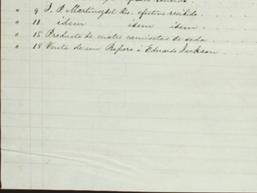 " 9 J. P. Martinez del Rio. efectivo recibido.
" 11 idem idem idem.
" 15 Producto de cuatro camisetas de seda.
" 18 Venta de un Ropero á Eduardo Jackson.